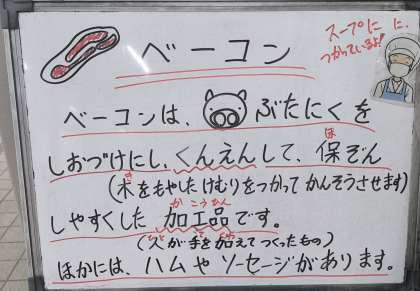 ベーコン
スープに に、
つかっているよ!
ベーコンは、ぶたにくを
しおづけにし、くんえんして、保ぞん
ほ
(木をもやしたけむりをつかって かんそうさせます)
き
しやすくした 加工品です。
か こうひん
(人が手を加えてつくったもの)
ほかには、ハムや ソーセージがあります。